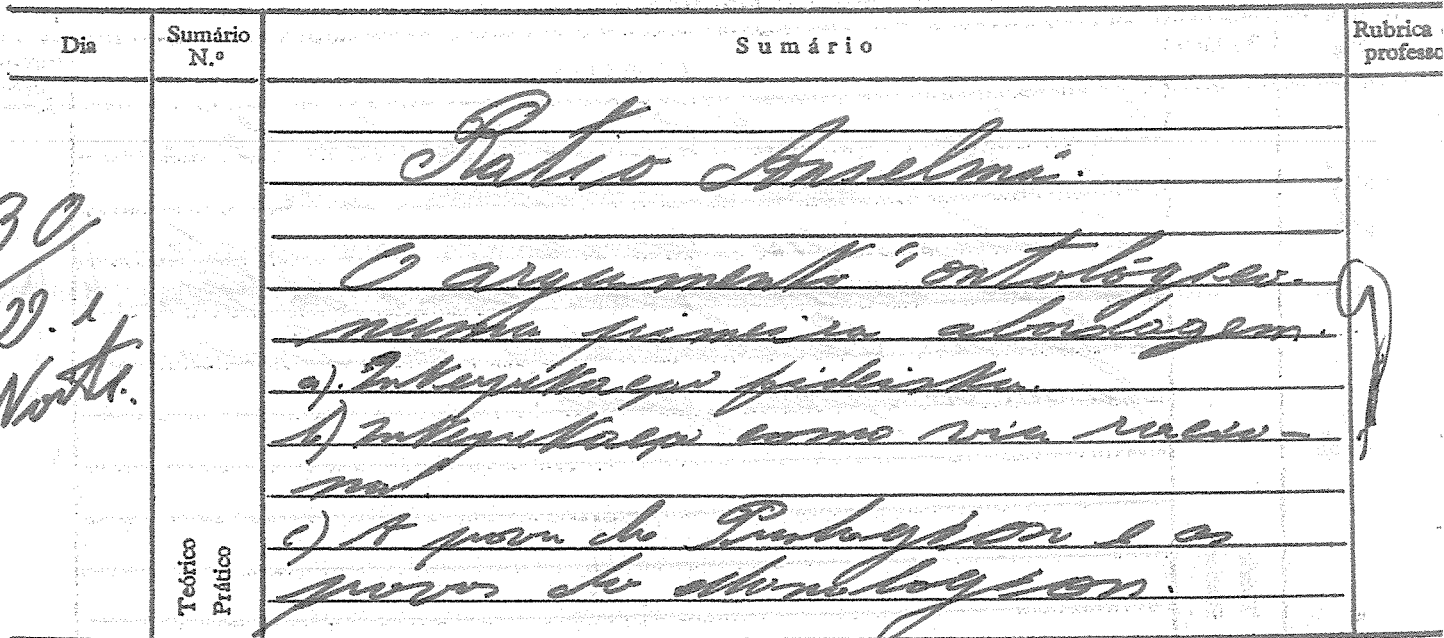 Dia
Sumário N.º
Sumário
Rubrica
professo
Ratio Anselmi.
30
O argumento "ontológico"
numa primeira abordagem.
a). Interpretação fideista.
b) Interpretação como via racio-
nal
c) A prova do Proslogion e as
provas do Monologion.
Teórico
Prático